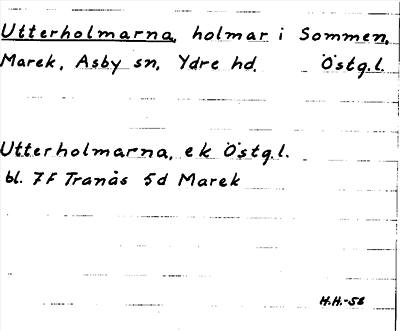 Utterholmarna, holmar i Sommen,
Marek, Asby sn, Ydre hd. Östg.l.
Utterholmarna, ek Östg.l.
bl. 7F Tranås 5d Marek
H.H.-56